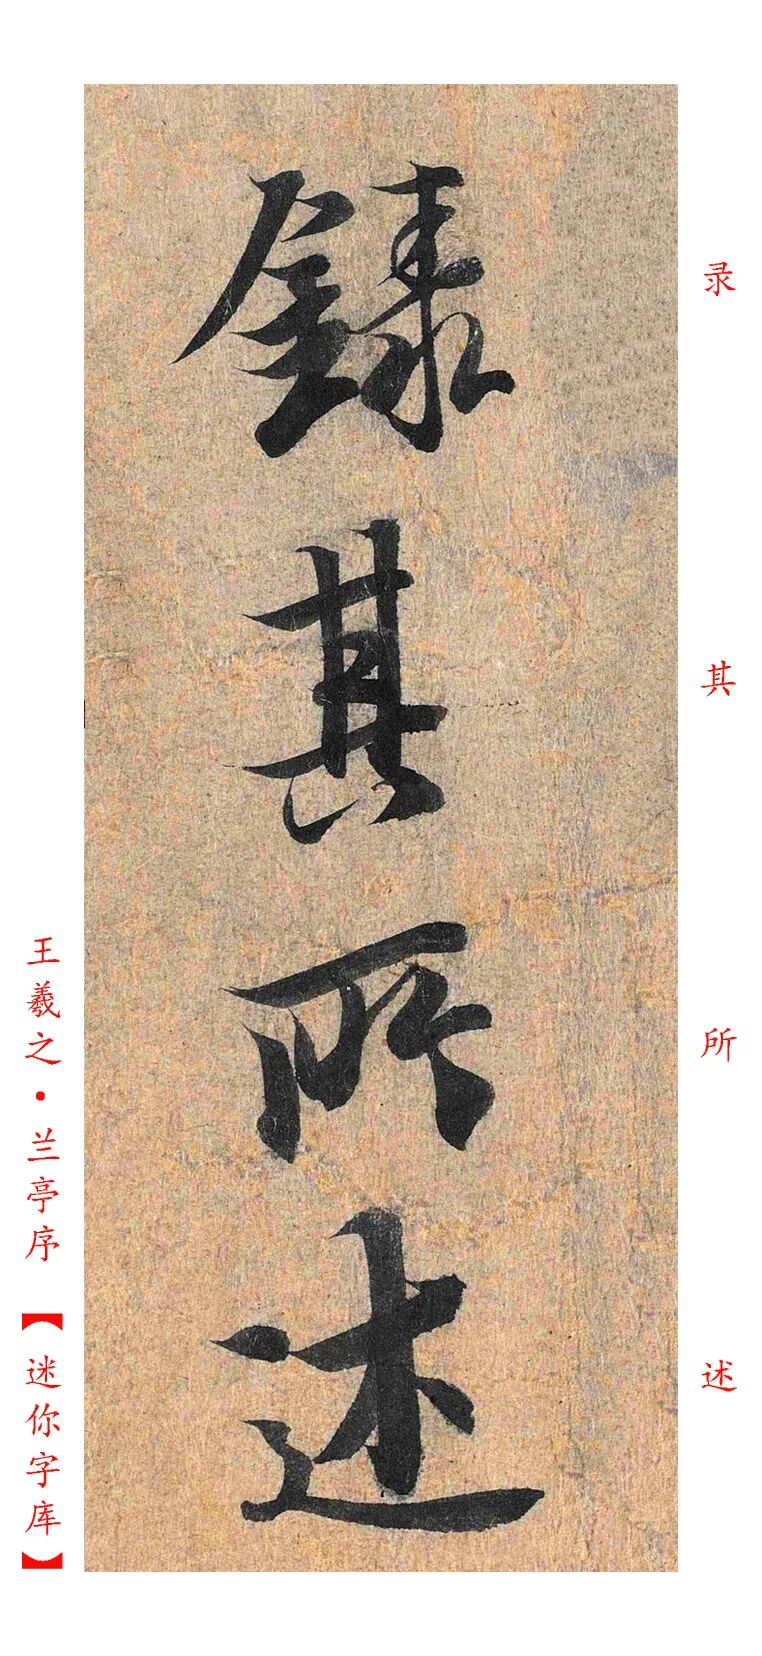 錄其所述
录其所述
王羲之·兰亭序【迷你字库】